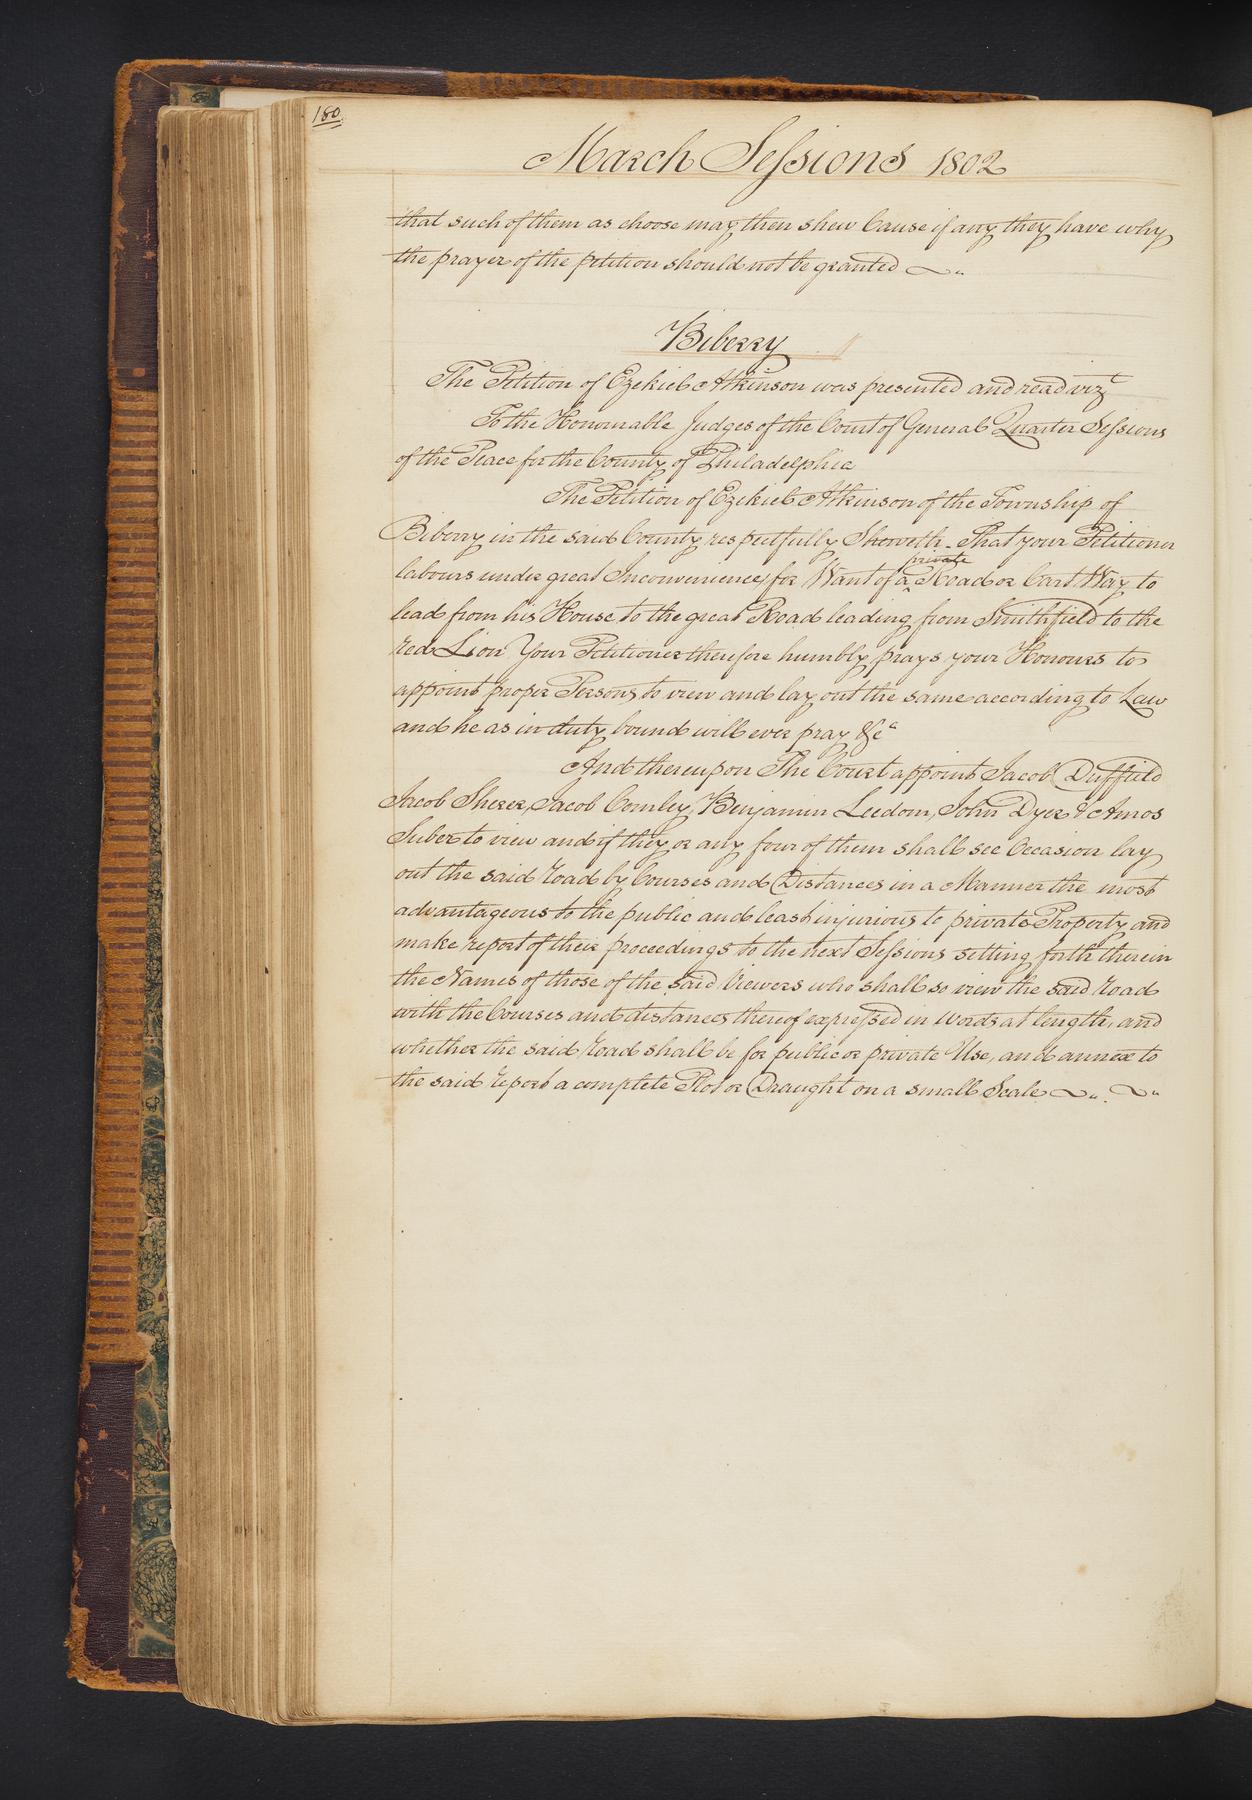 180.
March Sessions 1802
that such of them as choose may then shew Cause if any they have why
the prayer of the petition should not be granted
Biberry
The Petition of Ezekiel Atkinson was presented and read vizt
To the Honourable Judges of the Court of General Quarter Sessions
of the Peace for the County of Philadelphia
The Petition of Ezekiel Atkinson of the Township of
Biberry in the said County respectfully Sheweth - That your Petitioner
private
labours under great Inconvenience, for Want of a ^ Road or Cart Way to
lead from his House to the great Road leading from Smithfield to the
red Lion Your Petitioner therefore humbly prays your Honours to
appoint proper Persons to view and lay out the same according to Law
and he as in duty bound will ever pray &ca
And thereupon The Court appoint Jacob Duffield
Jacob Sherer, Jacob Comley, Benjamin Leedom, John Dyer & Amos
Suber to view and if they or any four of them shall see Occasion lay
out the said road by Courses and Distances in a Manner the most
advantageous to the public and least injurious to private Property and
make report of their proceedings to the next Sessions setting forth therein
the Names of those of the said Viewers who shall so view the said road
with the Courses and distances thereof expressed in words at length, and
whether the said road shall be for public or private Use, and annex to
the said report a complete Plot or Draught on a small Scale